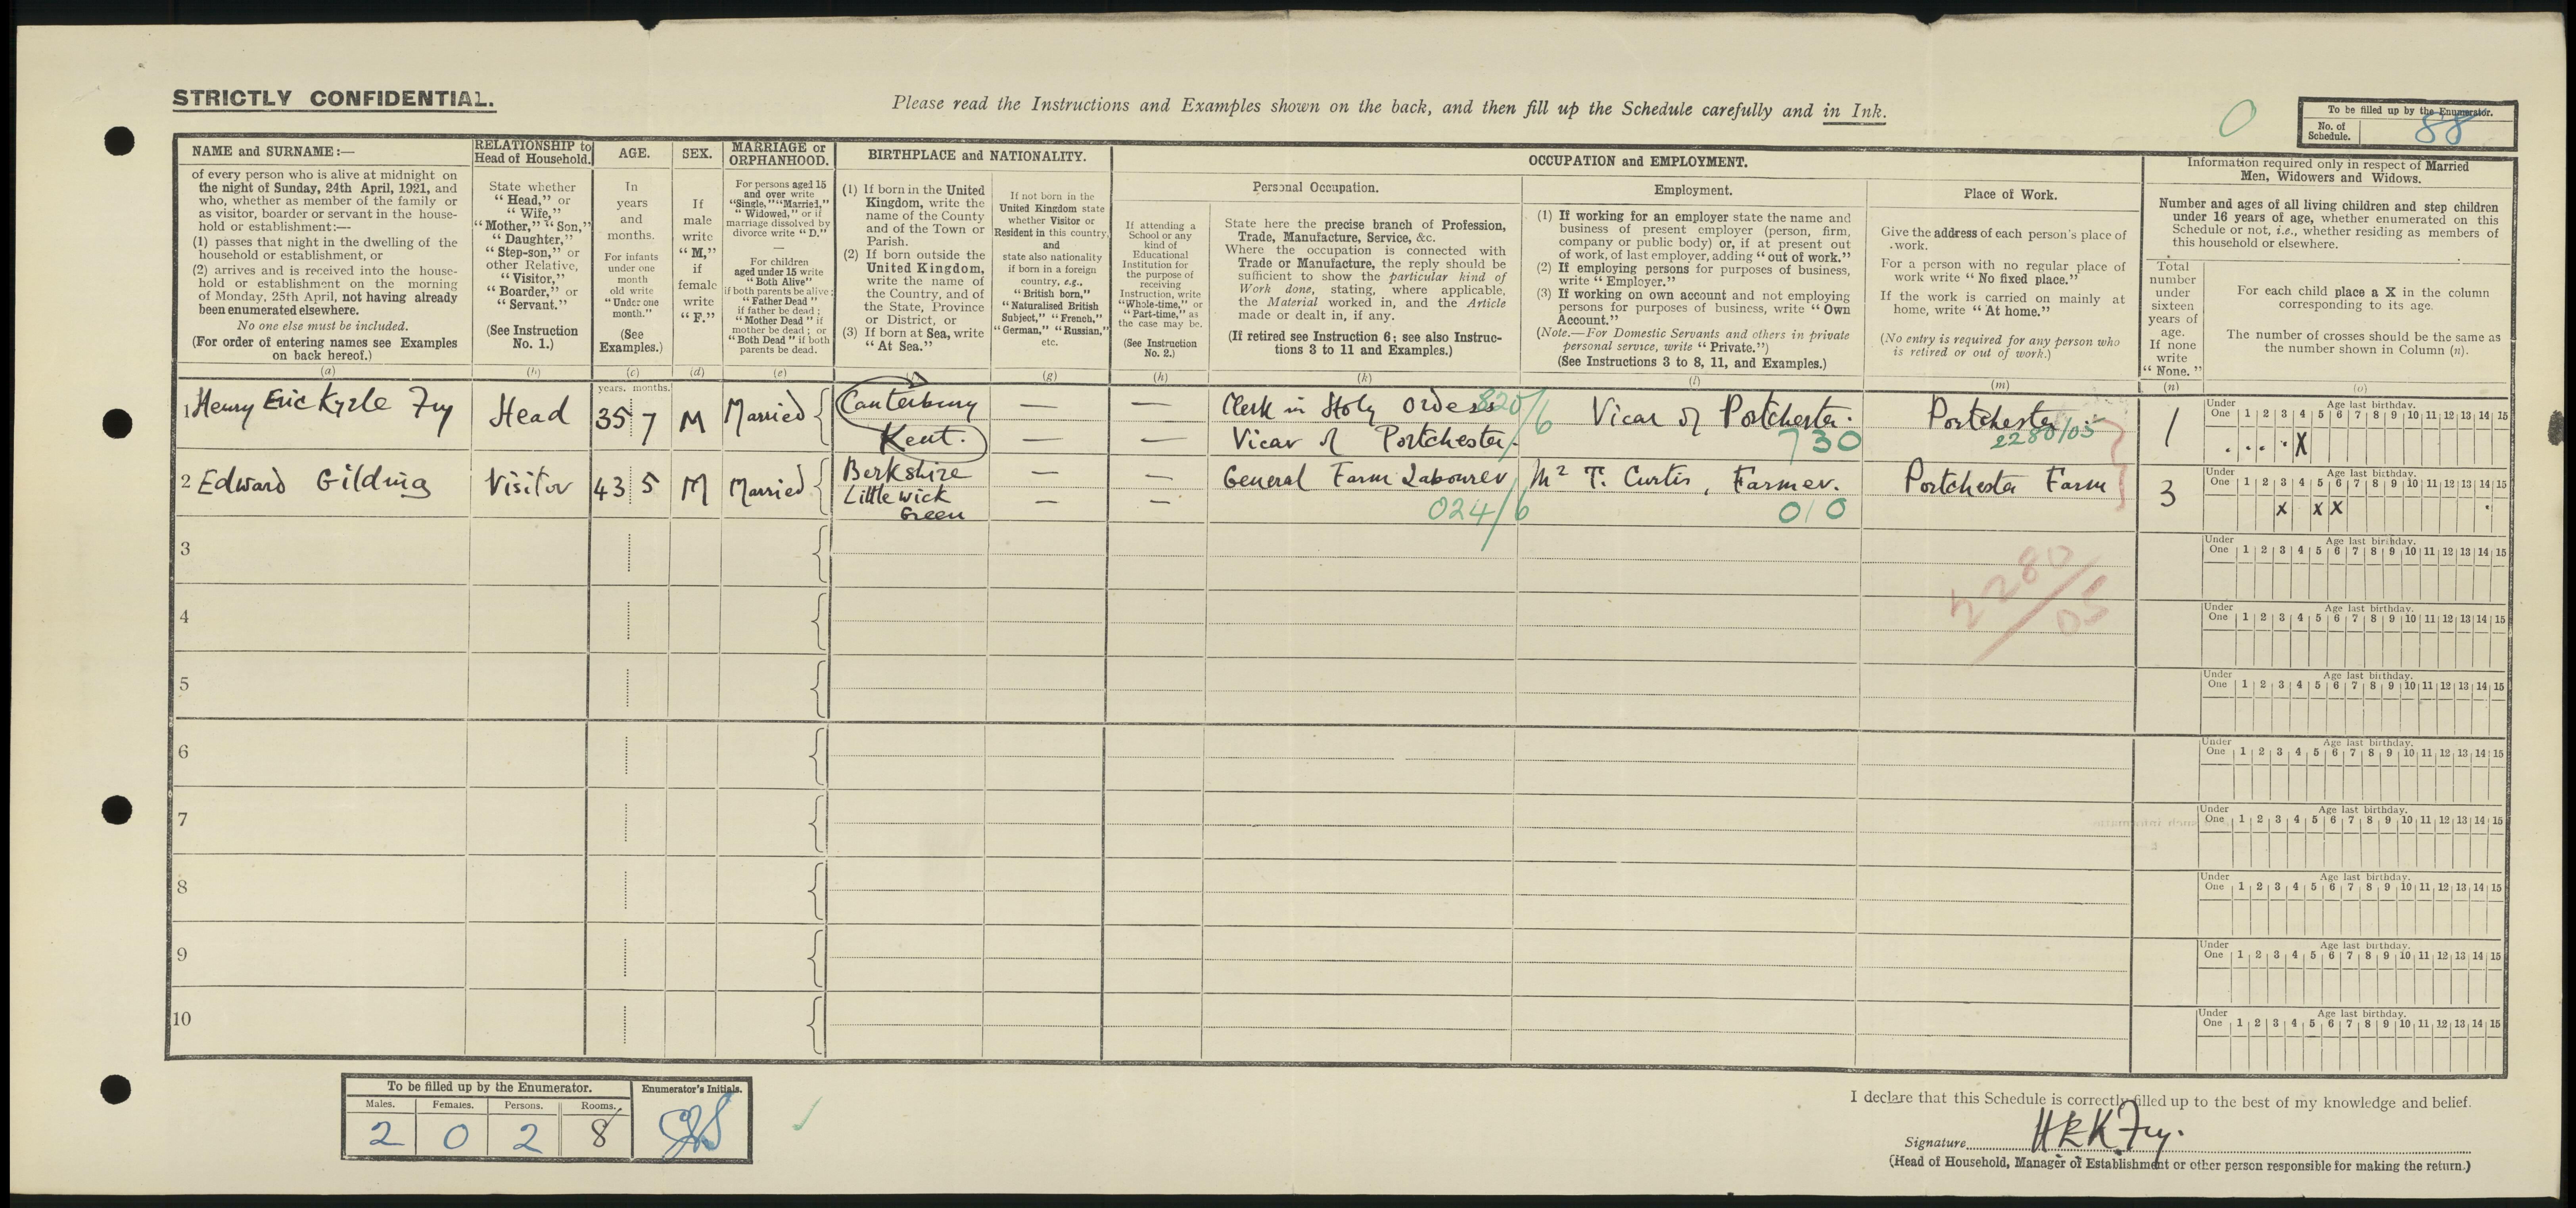 STRICTLY CONFIDENTIAL.
Please read the Instructions and Examples shown on the back, and then fill up the Schedule carefully and in Ink.
0
To be filled up by the Enumerator.
No. of Schedule. 88
NAME and SURNAME:—
of every person who is alive at midnight on
the night of Sunday, 24th April, 1921, and
who, whether as member of the family or
as visitor, boarder or servant in the house-
hold or establishment:—
(1) passes that night in the dwelling of the
household or establishment, or
(2) arrives and is received into the house-
hold or establishment on the morning
of Monday, 25th April, not having already
been enumerated elsewhere.
No one else must be included.
(For order of entering names see Examples
on back hereof.)
(a)
RELATIONSHIP to
Head of Household.
State whether
"Head," or
"Wife,"
"Mother," "Son,"
"Daughter,"
"Step-son," or
other Relative,
"Visitor,"
"Boarder," or
"Servant."
(See Instruction
No. 1.)
(b)
AGE.
In
years
and
months.
For infants
under one
month
old write
"Under one
month."
(See
Examples.)
(c)
SEX.
If
male
write
"M,"
if
female
write
"F."
(d)
MARRIAGE or
ORPHANHOOD.
For persons aged 15
and over write
"Single," "Married,"
"Widowed," or if
marriage dissolved by
divorce write "D."
—
For children
aged under 15 write
"Both Alive"
if both parents be alive;
"Father Dead"
if father be dead;
"Mother Dead" if
mother be dead; or
"Both Dead" if both
parents be dead.
(e)
BIRTHPLACE and NATIONALITY.
(1) If born in the United
Kingdom, write the
name of the County
and of the Town or
Parish.
(2) If born outside the
United Kingdom,
write the name of
the Country, and of
the State, Province
or District, or
(3) If born at Sea, write
"At Sea."
If not born in the
United Kingdom state
whether Visitor or
Resident in this country,
and
state also nationality
if born in a foreign
country, e.g.,
"British born,"
"Naturalised British
Subject," "French,"
"German," "Russian,"
etc.
(g)
OCCUPATION and EMPLOYMENT.
If attending a
School or any
kind of
Educational
Institution for
the purpose of
receiving
Instruction, write
"Whole-time," or
"Part-time," as
the case may be.
(See Instruction
No. 2.)
(h)
Personal Occupation.
State here the precise branch of Profession,
Trade, Manufacture, Service, &c.
Where the occupation is connected with
Trade or Manufacture, the reply should be
sufficient to show the particular kind of
Work done, stating, where applicable,
the Material worked in, and the Article
made or dealt in, if any.
(If retired see Instruction 6; see also Instruc-
tions 3 to 11 and Examples.)
(k)
Employment.
(1) If working for an employer state the name and
business of present employer (person, firm,
company or public body) or, if at present out
of work, of last employer, adding "out of work."
(2) If employing persons for purposes of business,
write "Employer."
(3) If working on own account and not employing
persons for purposes of business, write "Own
Account."
(Note.—For Domestic Servants and others in private
personal service, write "Private.")
(See Instructions 3 to 8, 11, and Examples.)
(l)
Place of Work.
Give the address of each person's place of
work.
For a person with no regular place of
work write "No fixed place."
If the work is carried on mainly at
home, write "At home."
(No entry is required for any person who
is retired or out of work.)
(m)
Information required only in respect of Married
Men, Widowers and Widows.
Number and ages of all living children and step children
under 16 years of age, whether enumerated on this
Schedule or not, i.e., whether residing as members of
this household or elsewhere.
Total
number
under
sixteen
years of
age.
If none
write
"None."
(n)
For each child place a X in the column
corresponding to its age.
The number of crosses should be the same as
the number shown in Column (n).
(o)
years. months.
1 Henry Eric Kyrle Fry Head 35 7 M Married Canterbury — — Clerk in Holy Orders 820/6 Vicar of Portchester. Portchester. 1
Kent. — — Vicar of Portchester. 730 2280/05
Under One 1 2 3 4 5 6 7 8 9 10 11 12 13 14 15
Age last birthday.
X
2 Edward Gilding Visitor 43 5 M Married Berkshire — General Farm Labourer Mr T. Curtis, Farmer. Portchester Farm 3
Littlewick — —
Green 024/6 010
Under One 1 2 3 4 5 6 7 8 9 10 11 12 13 14 15
Age last birthday.
X X X
3
Under One 1 2 3 4 5 6 7 8 9 10 11 12 13 14 15
Age last birthday.
2280/05
4
Under One 1 2 3 4 5 6 7 8 9 10 11 12 13 14 15
Age last birthday.
5
Under One 1 2 3 4 5 6 7 8 9 10 11 12 13 14 15
Age last birthday.
6
Under One 1 2 3 4 5 6 7 8 9 10 11 12 13 14 15
Age last birthday.
7
Under One 1 2 3 4 5 6 7 8 9 10 11 12 13 14 15
Age last birthday.
8
Under One 1 2 3 4 5 6 7 8 9 10 11 12 13 14 15
Age last birthday.
9
Under One 1 2 3 4 5 6 7 8 9 10 11 12 13 14 15
Age last birthday.
10
Under One 1 2 3 4 5 6 7 8 9 10 11 12 13 14 15
Age last birthday.
To be filled up by the Enumerator.
Males. Females. Persons. Rooms.
2 0 2 8
Enumerator's Initials.
I declare that this Schedule is correctly filled up to the best of my knowledge and belief.
Signature H E K Fry.
(Head of Household, Manager of Establishment or other person responsible for making the return.)